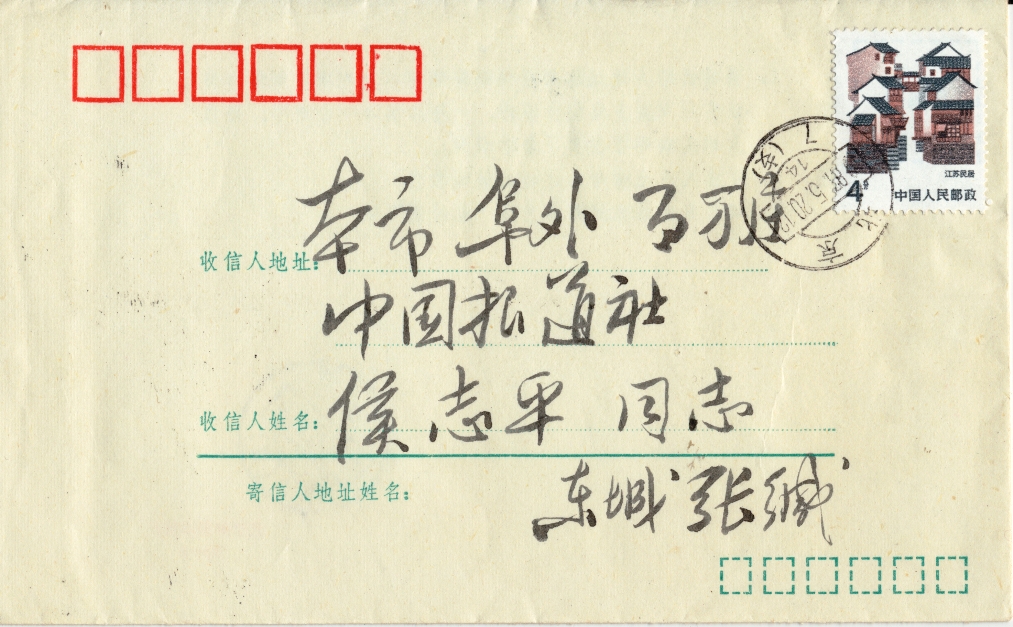 江苏民居
4分
中国人民邮政
北京
7(支)
14
1987.5.20.19
收信人地址：本市 阜外 百万庄
中国报道社
收信人姓名：侯志平 同志
寄信人地址姓名：东城 张 缄